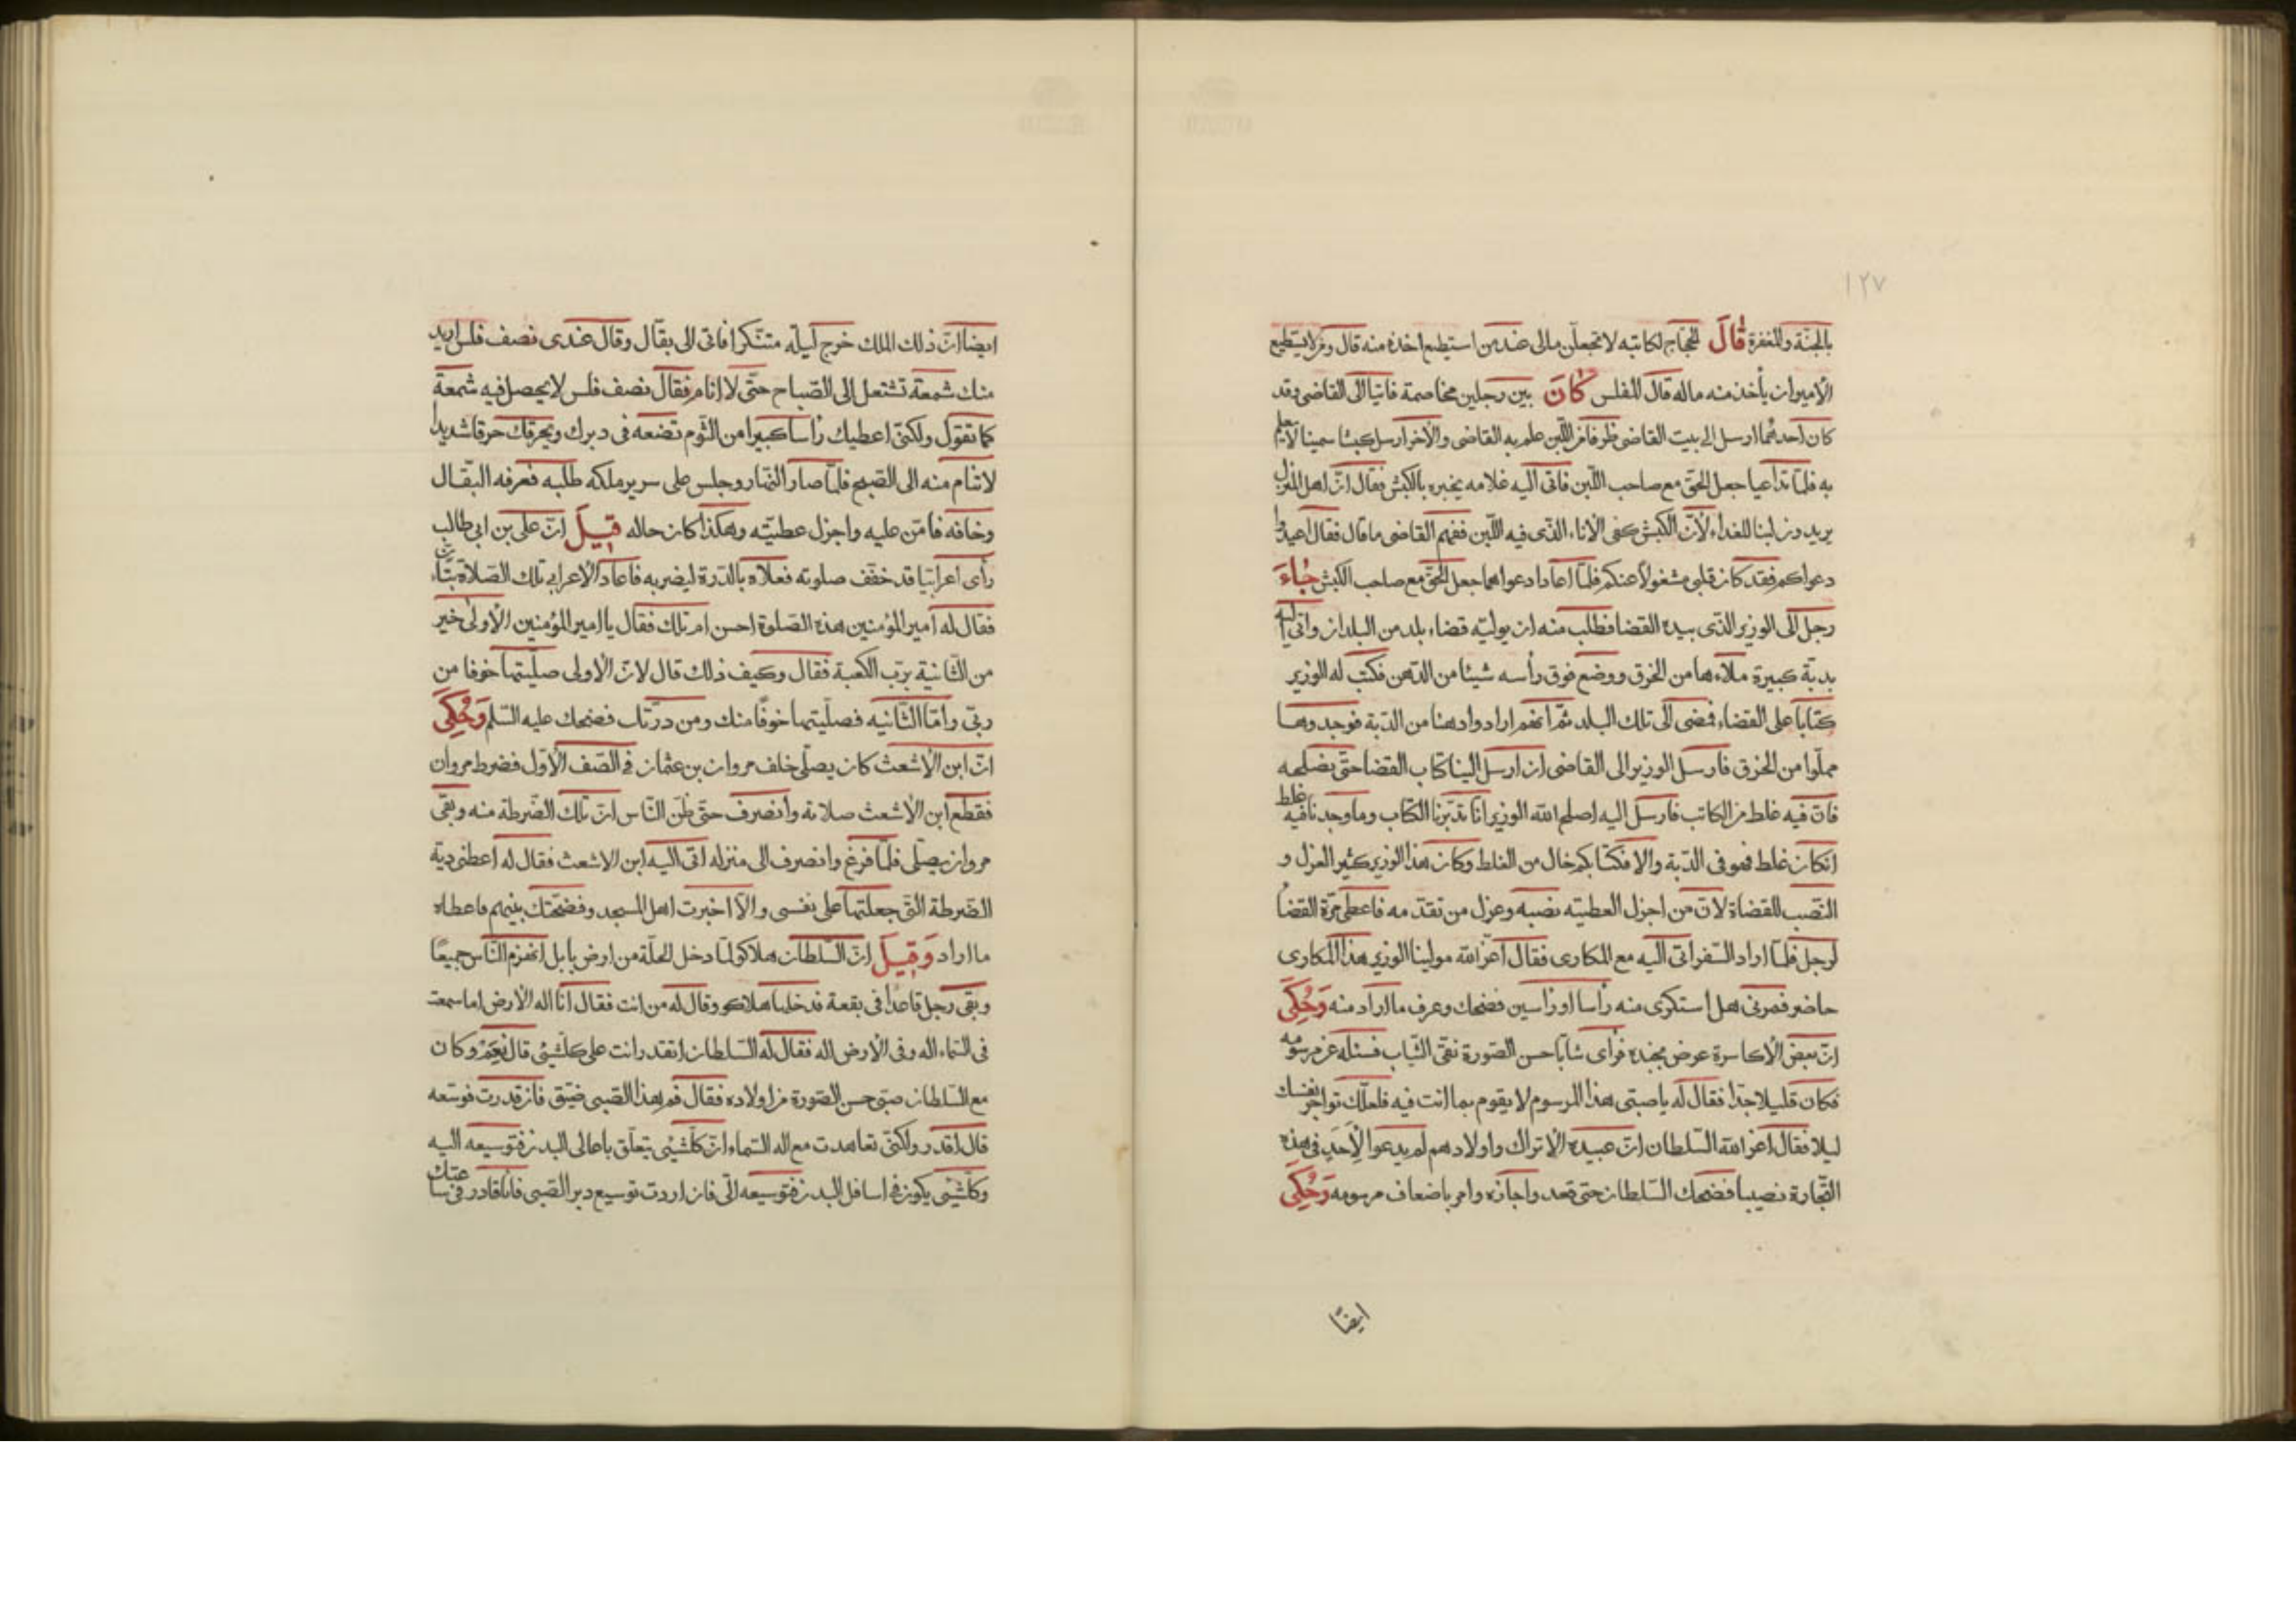 ١٢٧
بالجنّة والمغفرة قَالَ الحجّاج لكاتبه لا تجعلنّ مالى عند من استطيع اخذه منه قال ومن لا يستطيع
الأمير ان يأخذ منه ماله قال المفلس كَانَ بين رجلين مخاصمة فاتيا الى القاضى وقد
كان احدهما ارسل الى بيت القاضى ظرفا من اللّبن علم به القاضى والآخر ارسل كبشا سمينا لا يعلم
به فلمّا تداعيا جعل الحقّ مع صاحب اللّبن فاتى اليه غلامه يخبره بالكبش فقال انّ اهل المنزل
يريدون لبنا للغداء لأنّ الكبش كفى الاناء الذّى فيه اللّبن ففهم القاضى ما قال فقال اعيدوا
دعواكم فقد كان قلبى مشغولا عنكم فلمّا اعادا دعواهما جعل الحقّ مع صاحب الكبش جَاءَ
رجل الى الوزير الذّى بيده القضا فطلب منه ان يوليّه قضاء بلد من البلدان واتى اليه
بدبّة كبيرة ملاءها من الخرق ووضع فوق رأسه شيئا من الدّهن فكتب له الوزير
كتابا على القضاء فمضى الى تلك البلد ثمّ انّهم ارادوا دهنا من الدبّة فوجدوها
مملّوا من الخرق فارسل الوزير الى القاضى ان ارسل الينا كتاب القضا حتّى نصلحه
فانّ فيه غلط من الكاتب فارسل اليه اصلح الله الوزير انّا تدبّرنا الكتاب وما وجدنا فيه غلط
ان كان غلط فهو فى الدّبة والا فكتابكم خال من الغلط وكان هذا الوزير كثير العزل و
النّصب للقضاة لانّ من اجزل العطيّه نصبه وعزل من تقدّمه فاعطى مرّة القضا
لرجل فلمّا اراد السّفر اتى اليه مع المكارى فقال اعزّ الله مولينا الوزير هذا المكارى
حاضر فمرنى هل استكرى منه رأسا او رأسين فضحك وعرف ما اراد منه وَحُكِىَ
انّ بعض الأكاسرة عرض بجنده فرأى شابّا حسن الصّورة نقىّ الثّياب فسئله عن مرسومه
فكان قليلا جدّا فقال له يا صبّى هذا المرسوم لا يقوم بما انت فيه فلعلّك تواجر نفسك
ليلا فقال اعزّ الله السّلطان انّ عبيده الاتراك واولادهم لم يدعوا لأحد فى هذه
التّجارة نصيبا فضحك السّلطان حتى قعد واجازه وامر باضعاف مرسومه وَحُكِىَ
ايضًا
ايضا انّ ذلك الملك خرج ليلة متنّكرا فاتى الى بقّال وقال عندى نصف فلس اريد
منك شمعة تشتعل الى الصّباح حتّى لا انام فقال نصف فلس لا يحصل فيه شمعة
كما تقول ولكنّى اعطيك رأسا كبيرا من الثّوم تضعه فى دبرك ويحرقك حرقا شديدا
لا تنام منه الى الصّبح فلمّا صار النّهار وجلس على سرير ملكه طلبه فعرفه البّقال
وخافه فامّن عليه واجزل عطيّته وهكذا كان حاله قِيلَ انّ على بن ابى طالب
رأى اعرابيّا قد خفّف صلوته فعلاه بالدّرة ليضربه فاعاد الأعرابى تلك الصّلاة بتأن
فقال له امير المؤمنين هذه الصّلوة احسن ام تلك فقال يا امير المؤمنين الأولى خير
من الثّانية بربّ الكعبة فقال وكيف ذلك قال لانّ الأولى صلّيتها خوفا من
ربّى وامّا الثّانيه فصلّيتها خوفًا منك ومن درّتك فضحك عليه السّلم وَحُكِىَ
انّ ابن الأشعث كان يصلّى خلف مروان بن عثمان فى الصّف الأوّل فضرط مروان
فقطع ابن الأشعث صلاته وانصرف حتّى ظنّ النّاس انّ تلك الضّرطة منه وبقى
مروان يصلّى فلمّا فرغ وانصرف الى منزله اتى اليه ابن الاشعث فقال له اعطنى دية
الضّرطة التّى جعلتها على نفسى والّا اخبرت اهل المسجد وفضحتك بينهم فاعطاه
ما اراد وَقِيلَ انّ السّلطان هلاكو لمّا دخل الحلّة من ارض بابل انهزم النّاس جميعًا
وبقى رجل قاعدا فى بقعة فدخلها هلاكو وقال له من انت فقال انا اله الأرض اما سمعت
فى السّماء اله وفى الأرض اله فقال له السّلطان اتقدر انت على كلّشيئ قال نعم وكان
مع السّلطان صبّى حسن الصّورة من اولاده فقال فم هذا الصّبى ضيّق فان قدرت فوسّعه
قال اقدر ولكنّى تعاهدت مع اله السّماء انّ كلّشيئى يتعلّق باعالى البدن فتوسيعه اليه
وكلّشيئى يكون فى اسافل البدن فتوسيعه الّى فان اردت توسيع دبر الصّبى فانا قادر فى ساعتك